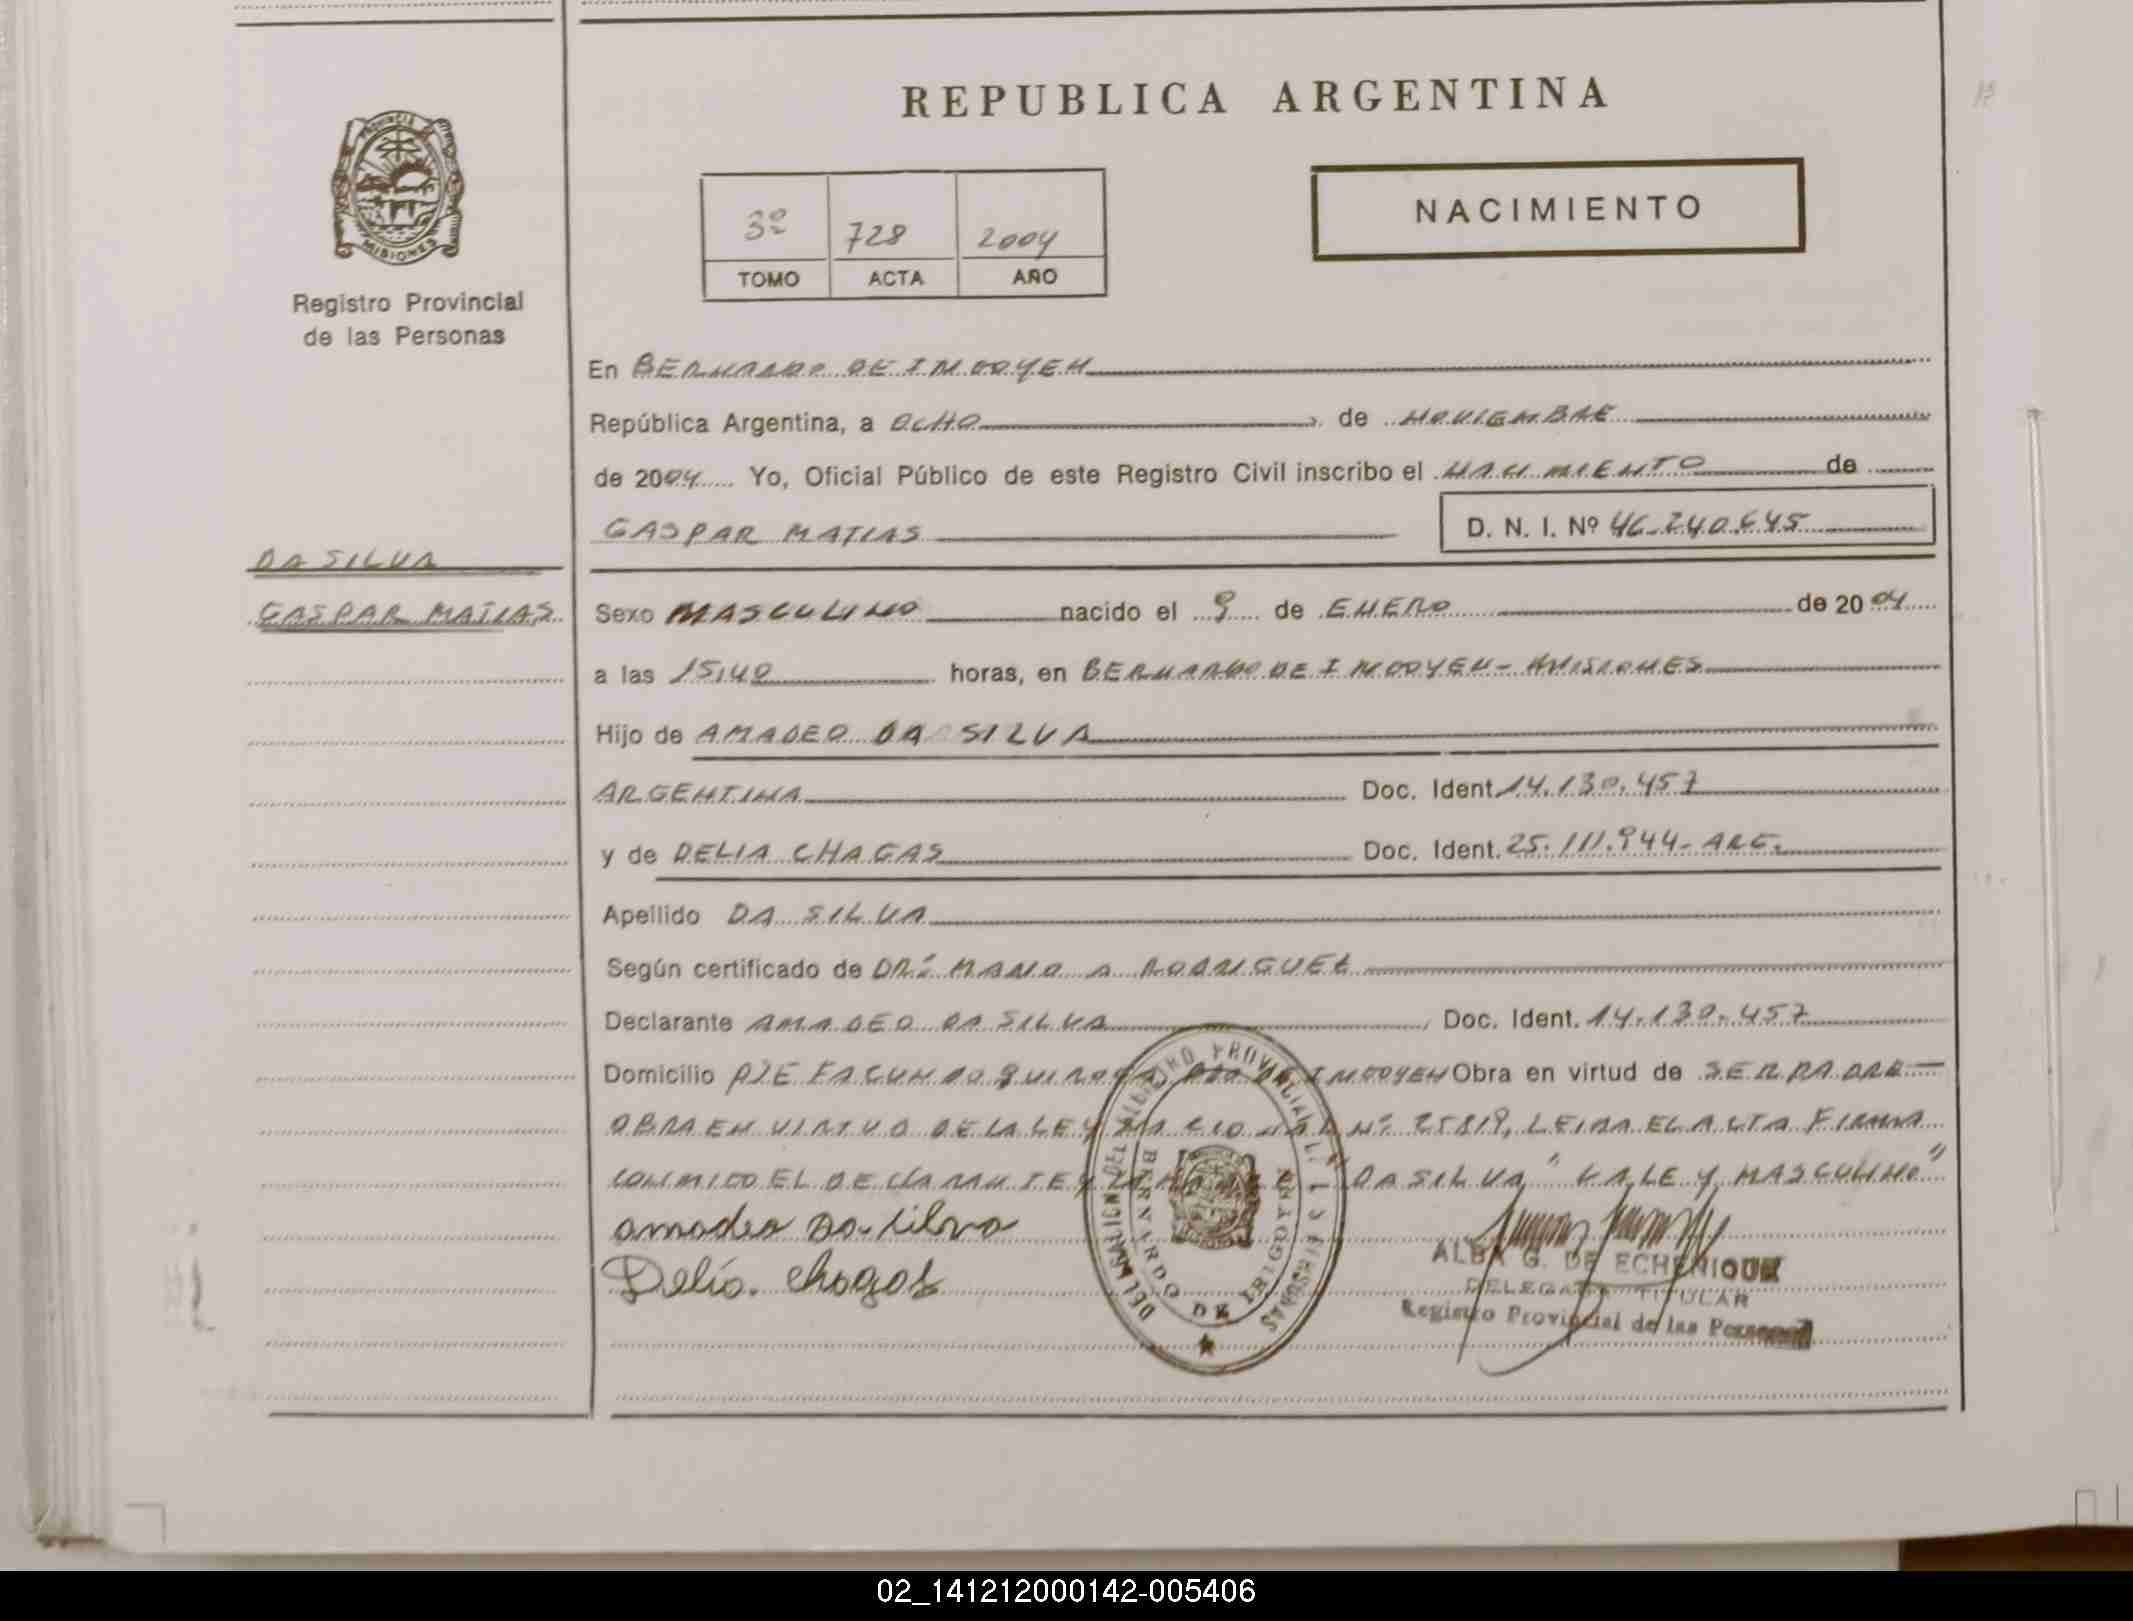 REPUBLICA ARGENTINA
PROVINCIA DE
MISIONES
Registro Provincial
de las Personas
3º 728 2004
TOMO ACTA AÑO
NACIMIENTO
En BERNARDO DE IRIGOYEN
República Argentina, a OCHO de NOVIEMBRE
de 2004 Yo, Oficial Público de este Registro Civil inscribo el NACIMIENTO de
GASPAR MATIAS D. N. I. Nº 46.240.645
DA SILVA
GASPAR MATIAS
Sexo MASCULINO nacido el 9 de ENERO de 2004
a las 15,40 horas, en BERNARDO DE IRIGOYEN - MISIONES
Hijo de AMADEO DA SILVA
ARGENTINA Doc. Ident. 14.130.457
y de DELIA CHAGAS Doc. Ident. 25.111.944 - ARG.
Apellido DA SILVA
Según certificado de DR. MARIO A RODRIGUEZ
Declarante AMADEO DA SILVA, Doc. Ident. 14.130.457
Domicilio PJE FACUNDO QUIROGA BDO DE IRIGOYEN Obra en virtud de SER PADRE
OBRA EN VIRTUD DE LA LEY NACIONAL Nº 25819, LEIDA EL ACTA FIRMA
CONMIGO EL DECLARANTE Y DA SILVA" VALE Y MASCULINO"
amadeo Da-silva
Delia. chagas
DELEGACION DEL REGISTRO PROVINCIAL DE LAS PERSONAS
BERNARDO DE IRIGOYEN
ALBA G. DE ECHENIQUE
DELEGADA TITULAR
Registro Provincial de las Personas
02_141212000142-005406